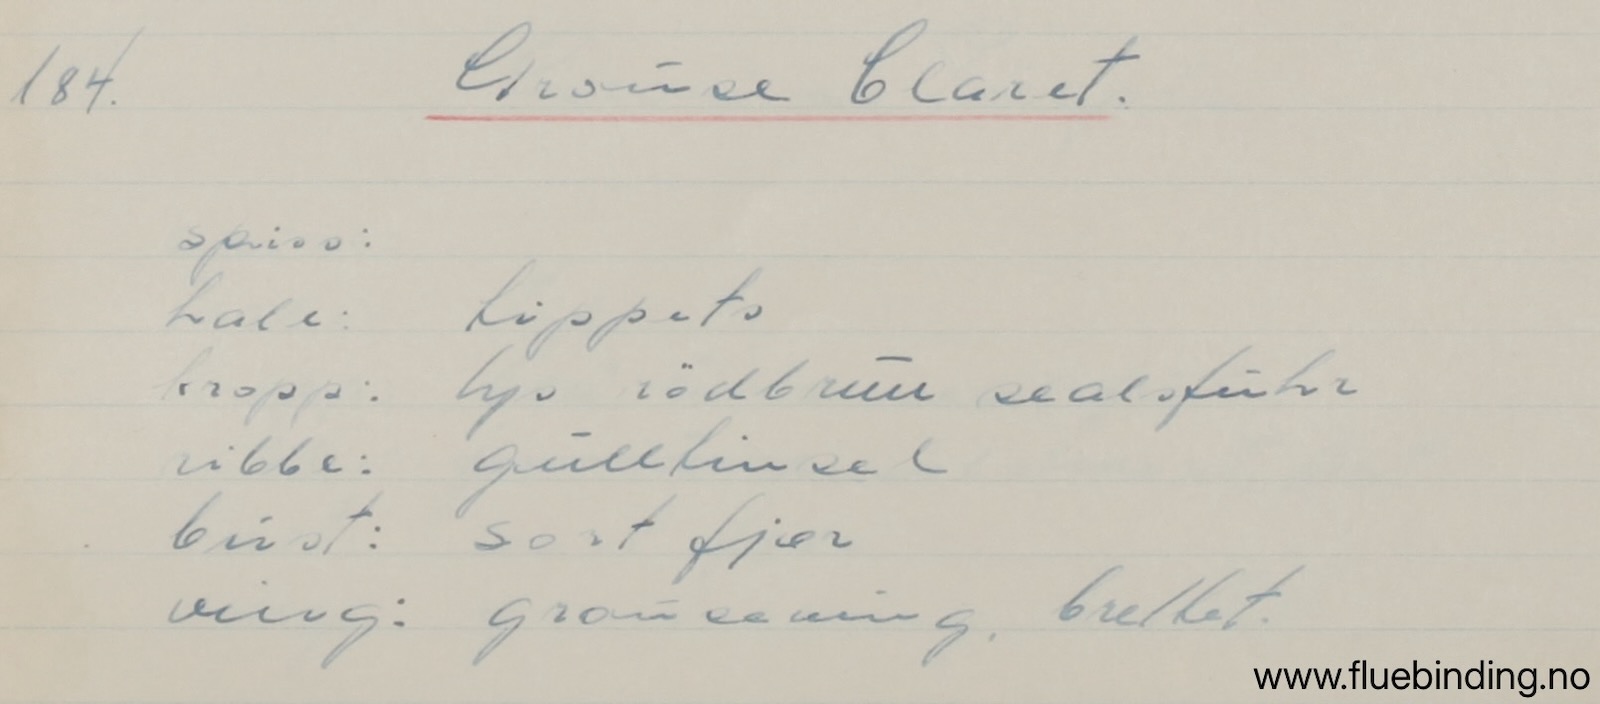 184. Grouse Claret.
spiss:
hale: tippets
kropp: lys rödbrun sealsfuhr
ribbe: gulltinsel
bust: sort fjær
ving: grousewing, brettet.
www.fluebinding.no